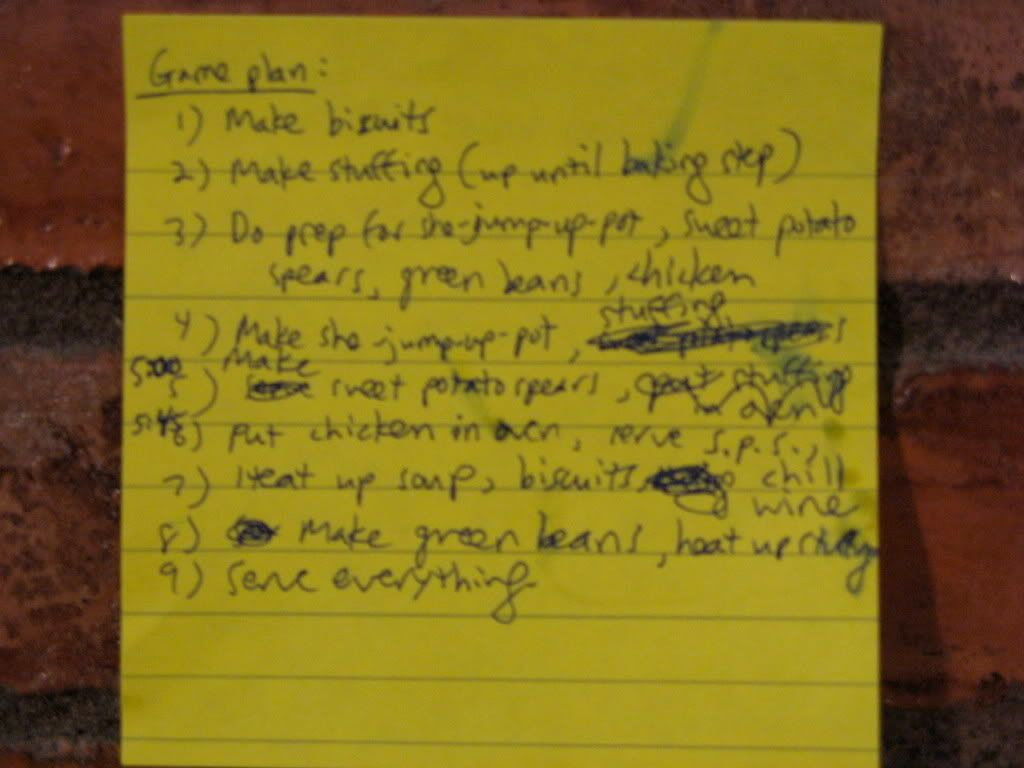 Game plan:
1) Make biscuits
2) Make stuffing (up until baking step)
3) Do prep for she-jump-up-pot, sweet potato
spears, green beans, chicken
4) Make she-jump-up-pot, stuffing
5:00
5) Make sweet potato spears,
5:45
6) Put chicken in oven, serve s.p.s.,
7) Heat up soup, biscuits, chill
wine
8) Make green beans, heat up stuffing
9) Serve everything